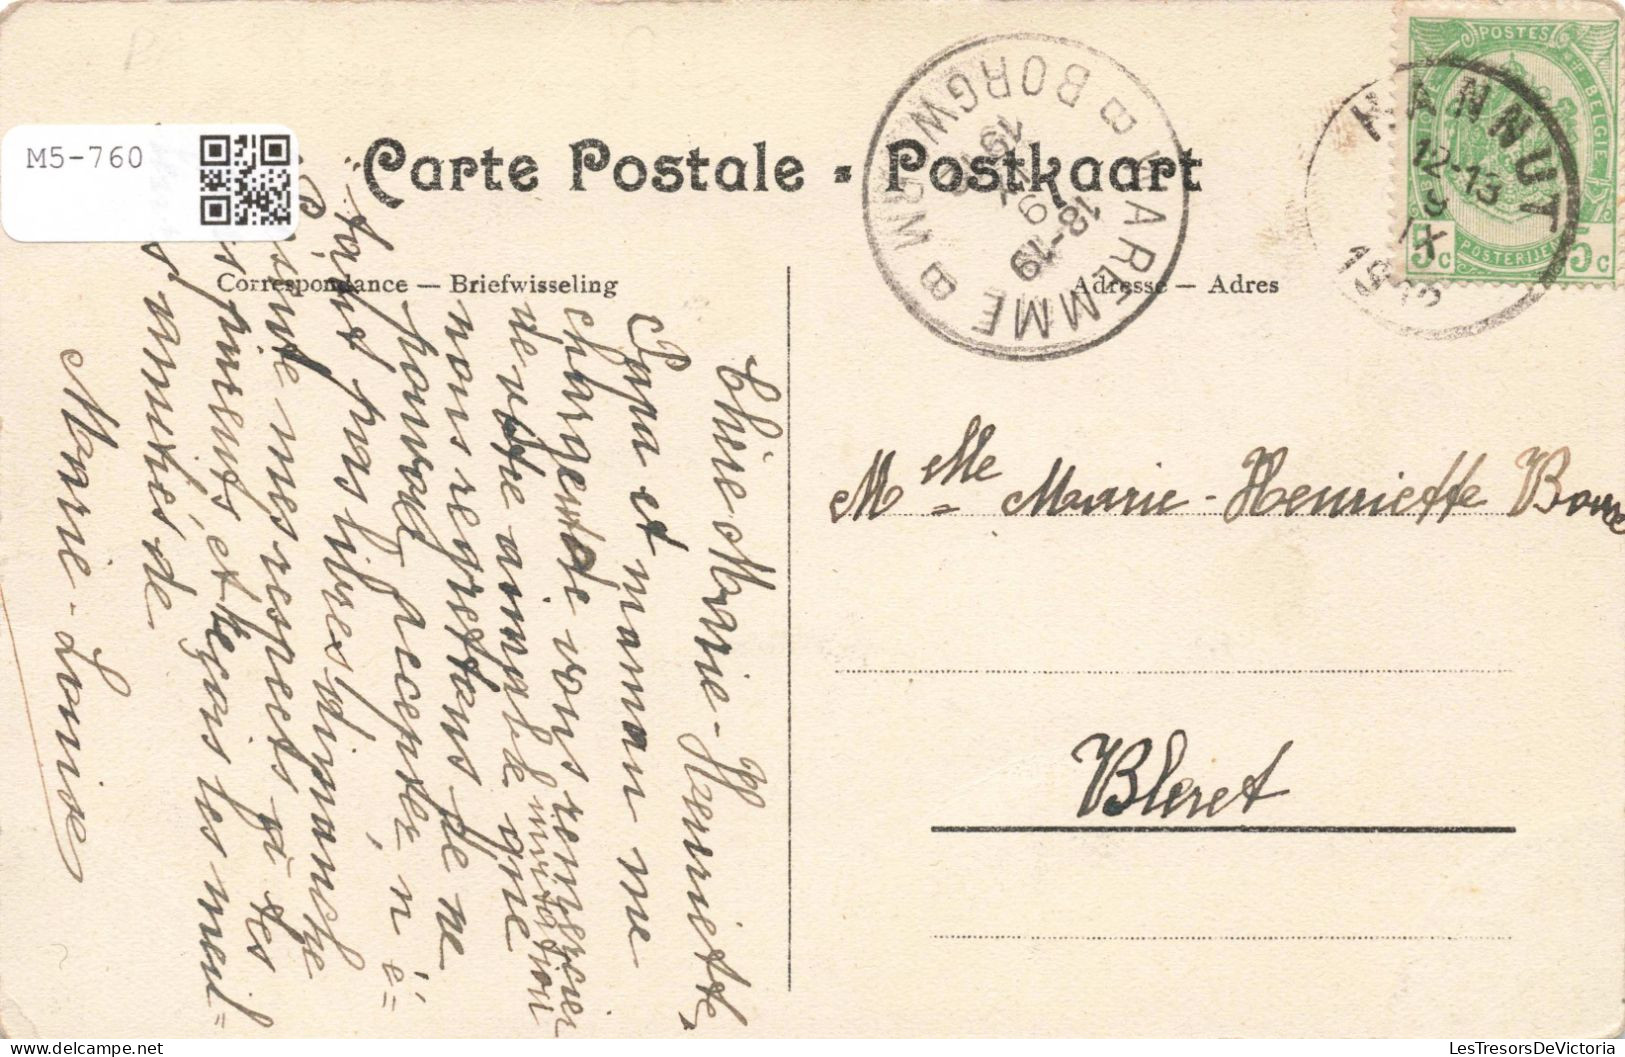 M5-760
Carte Postale - Postkaart
Correspondance — Briefwisseling
Adresse — Adres
WAREMME
BORGWORM
18-19
9
HANNUT
12-13
9
IX
POSTES
BELGIQUE
BELGIE
POSTERIJEN
5c
5c
Melle Marie-Henriette
Bleret
Chère Marie-Henriette,
Papa et maman me
chargent de vous remercier
de votre aimable invitation que
nous regrettons de ne
pouvoir accepter, n'é=
tant pas libres dimanche
mes respects à tes
parents, et reçois les meil=
amitiés de
Marie-Louise
LesTresorsDeVictoria